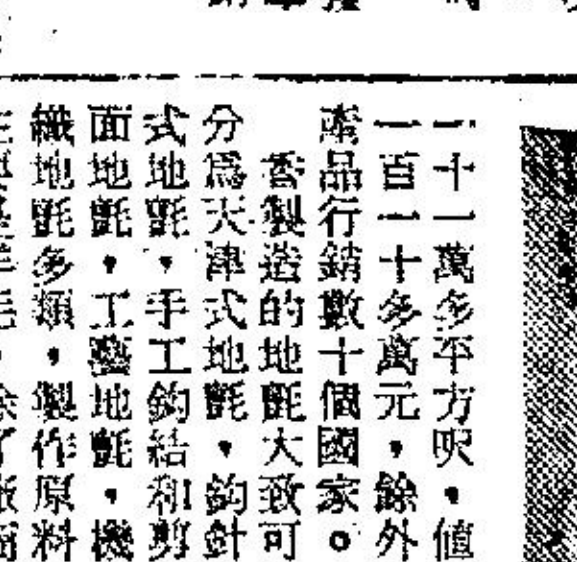 一十一萬多平方呎，值
一百一十多萬元，餘外
產品行銷數十個國家。
香製造的地氈大致可
分爲天津式地氈，鈎針
式地氈，手工鈎結和剪
面地氈，工藝地氈，機
織地氈多類，製作原料